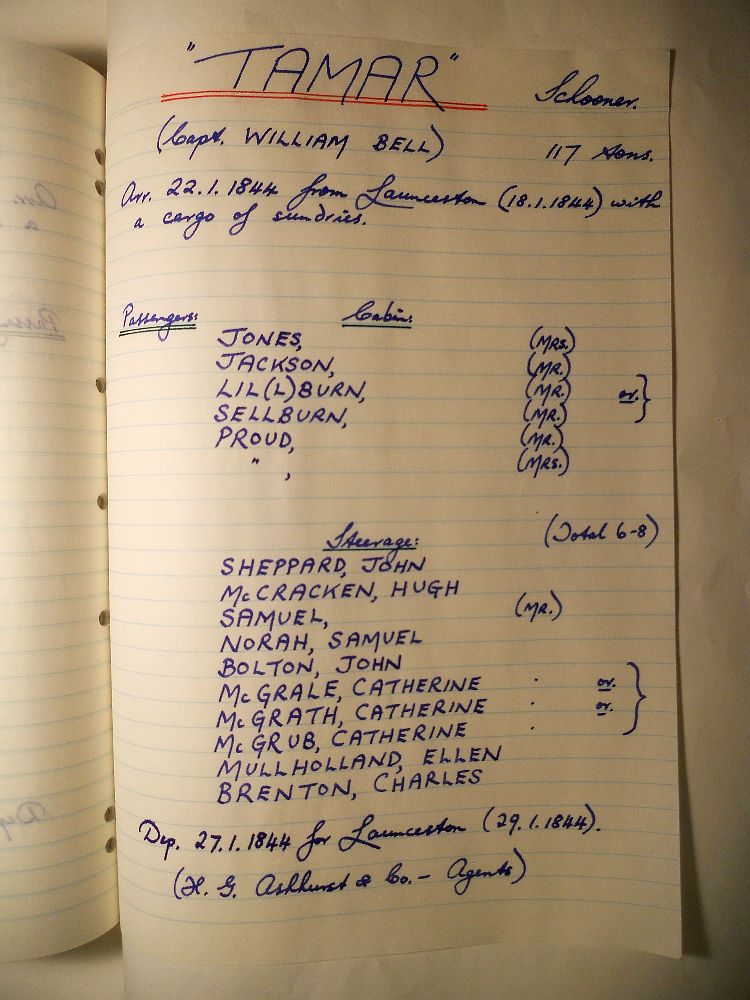 "TAMAR" Schooner.
(Capt. WILLIAM BELL) 117 tons.
Arr. 22.1.1844 from Launceston (18.1.1844) with
a cargo of sundries.
Passengers: Cabin:
JONES, (MRS.)
JACKSON, (MR.)
LIL(L)BURN, (MR.) or. }
SELLBURN, (MR.)
PROUD, (MR.)
" , (MRS.)
Steerage: (Total 6-8)
SHEPPARD, JOHN
McCRACKEN, HUGH
SAMUEL, (MR.)
NORAH, SAMUEL
BOLTON, JOHN
McGRALE, CATHERINE : or. }
McGRATH, CATHERINE : or.
McGRUB, CATHERINE :
MULLHOLLAND, ELLEN
BRENTON, CHARLES
Dep. 27.1.1844 for Launceston (29.1.1844).
(H. G. Ashhurst & Co. - Agents)